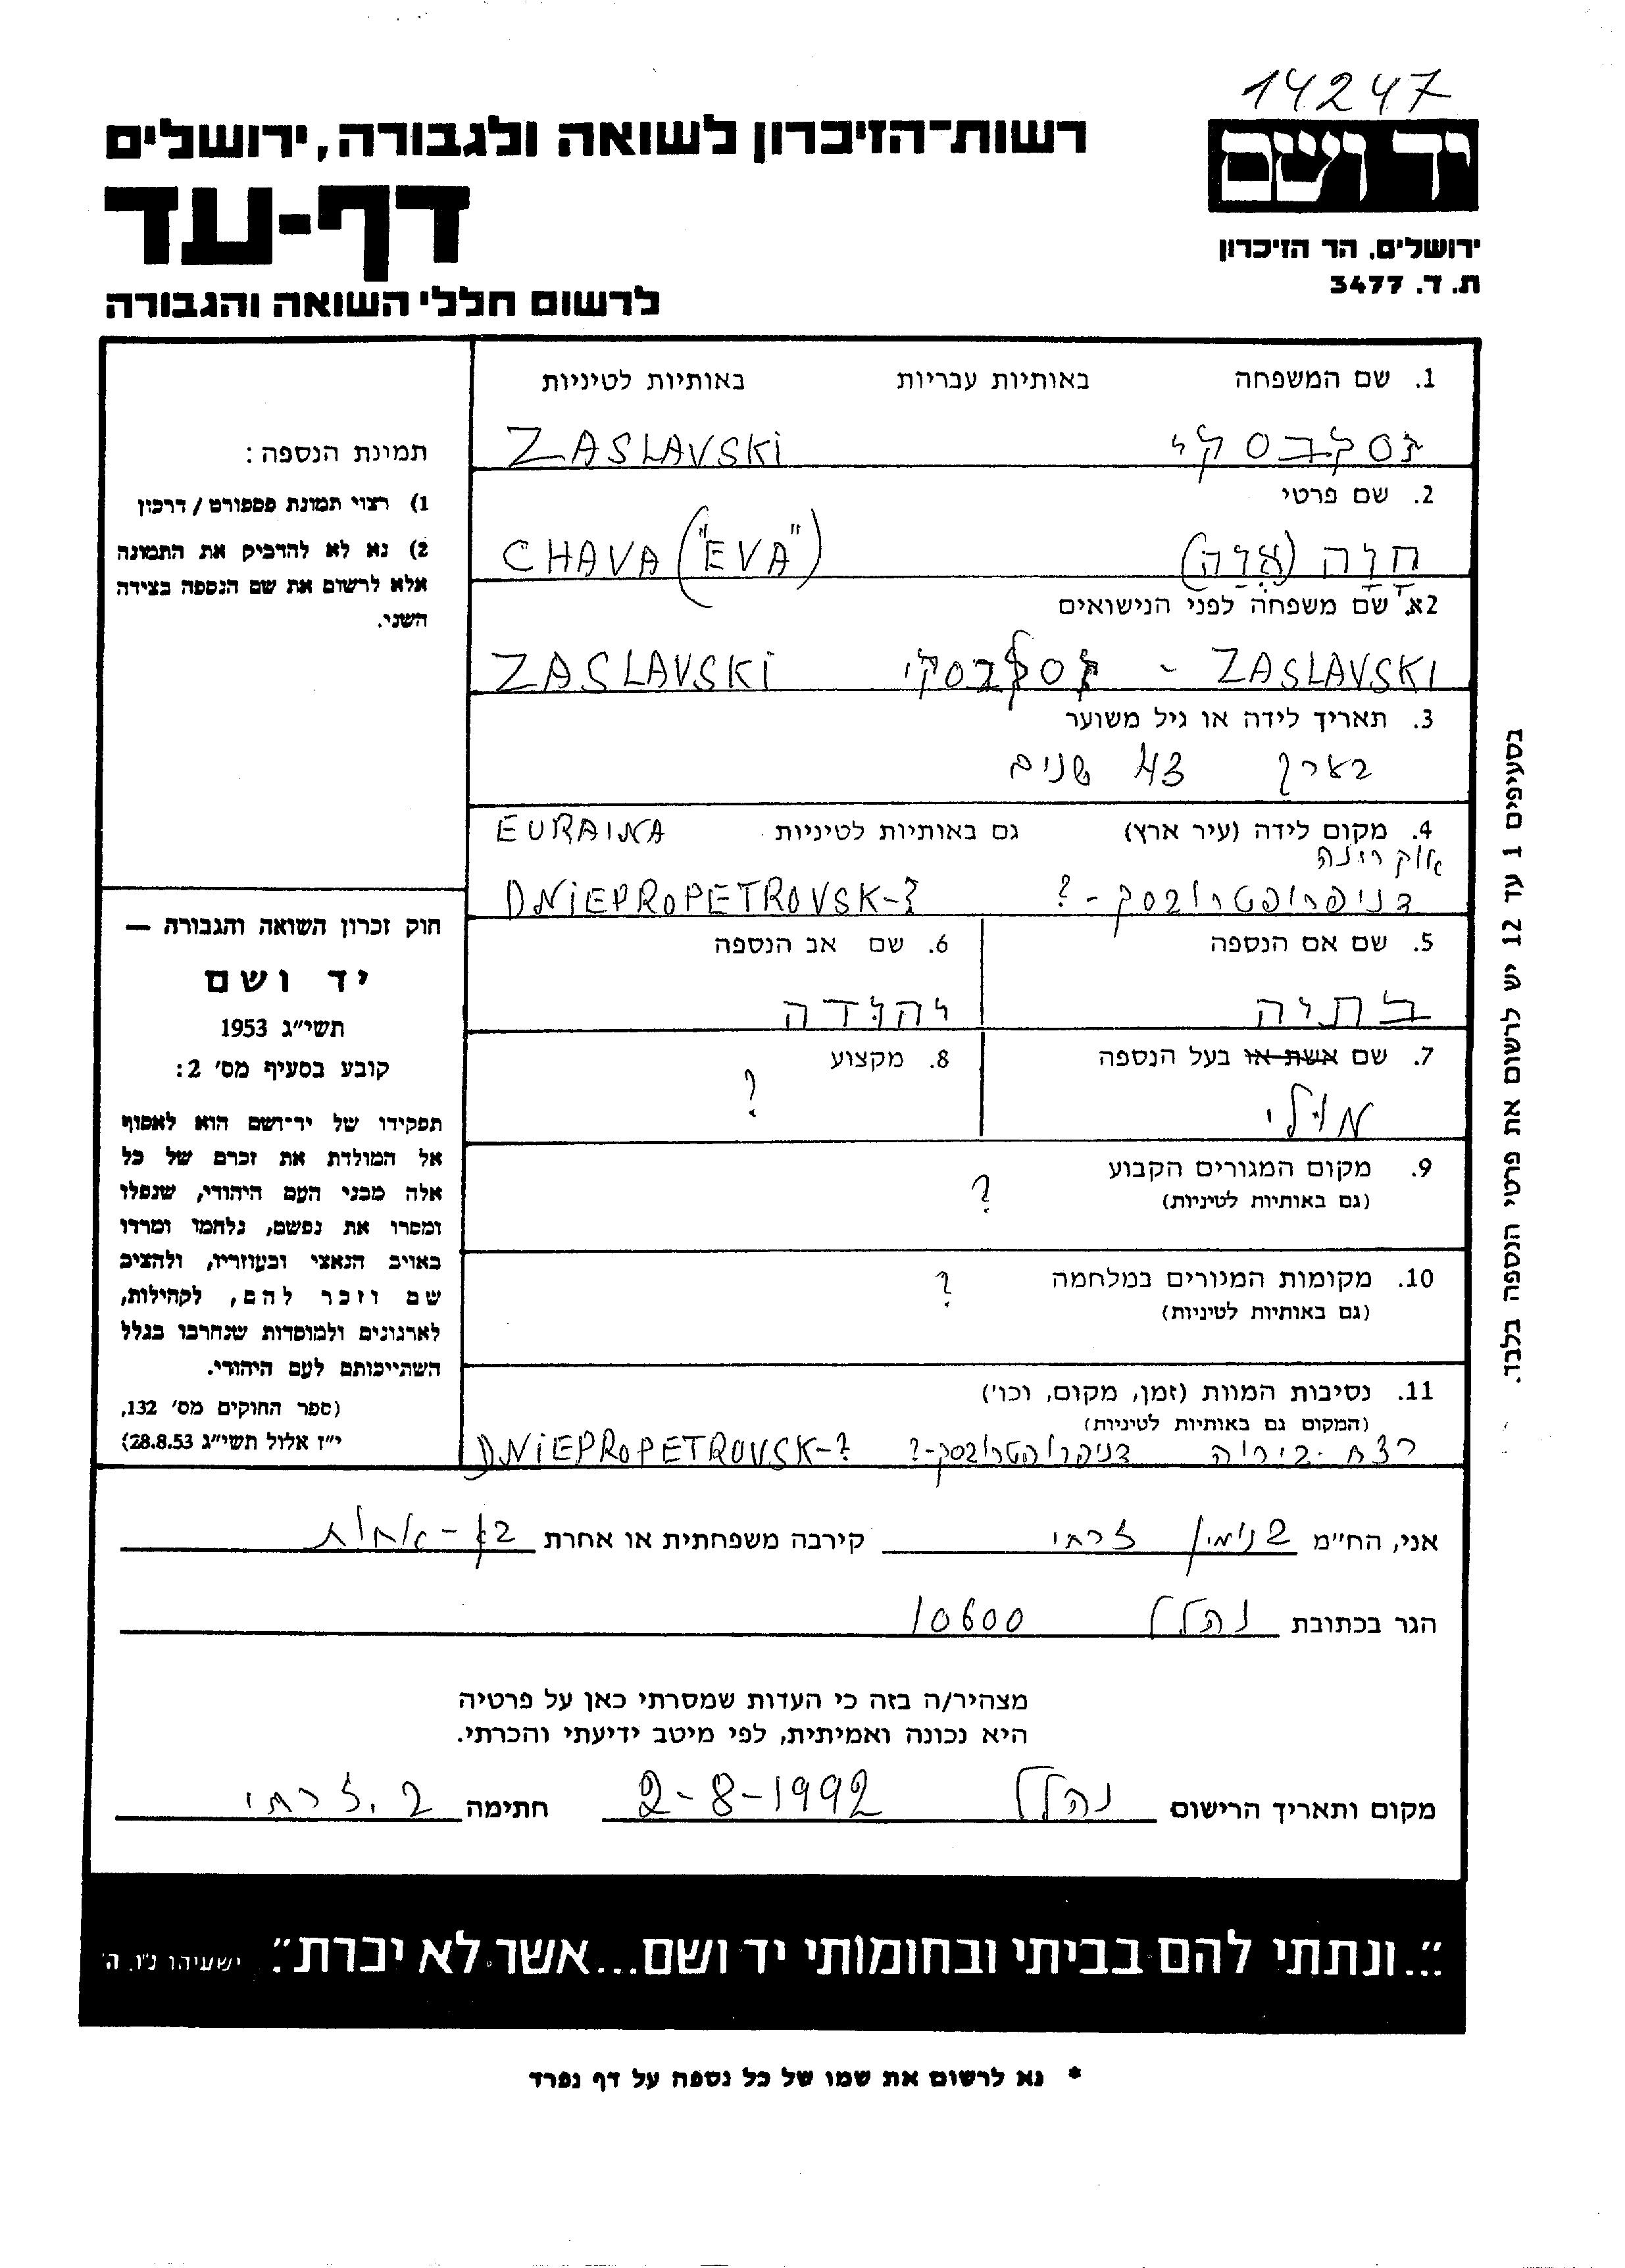 14247
יד ושם
ירושלים. הר הזיכרון
ת. ד. 3477
רשות-הזיכרון לשואה ולגבורה, ירושלים
דף-עד
לרשום חללי השואה והגבורה
1. שם המשפחה באותיות עבריות באותיות לטיניות
זסלבסקי ZASLAVSKI
2. שם פרטי
חַוָה (אֶוַה) CHAVA ("EVA")
2א. שם משפחה לפני הנישואים
ZASLAVSKI - זסלבסקי ZASLAVSKI
3. תאריך לידה או גיל משוער
בערך 43 שנים
4. מקום לידה (עיר ארץ) גם באותיות לטיניות EURAINA
אוקריינה
דניפרופטרובסק-? DNIEPROPETROVSK-?
5. שם אם הנספה 6. שם אב הנספה
בתיה יהודה
7. שם אשת או בעל הנספה 8. מקצוע
מולי ?
9. מקום המגורים הקבוע
(גם באותיות לטיניות) ?
10. מקומות המגורים במלחמה
(גם באותיות לטיניות) ?
11. נסיבות המוות (זמן, מקום, וכו')
(המקום גם באותיות לטיניות)
רצח-ביריה דניפרופטרובסק-? DNIEPROPETROVSK-?
תמונת הנספה:
1) רצוי תמונת פספורט / דרכון
2) נא לא להדביק את התמונה
אלא לרשום את שם הנספה בצידה
השני.
חוק זכרון השואה והגבורה —
יד ושם
תשי"ג 1953
קובע בסעיף מס' 2:
תפקידו של יד-ושם הוא לאסוף
אל המולדת את זכרם של כל
אלה מבני העם היהודי, שנפלו
ומסרו את נפשם, נלחמו ומרדו
באויב הנאצי ובעוזריו, ולהציב
שם וזכר להם, לקהילות,
לארגונים ולמוסדות שנחרבו בגלל
השתייכותם לעם היהודי.
(ספר החוקים מס' 132,
י"ז אלול תשי"ג 28.8.53)
בסעיפים 1 עד 12 יש לרשום את פרטי הנספה בלבד.
אני, הח"מ בנימין זרחי קירבה משפחתית או אחרת בן-אחות
הגר בכתובת נהלל 10600
מצהיר/ה בזה כי העדות שמסרתי כאן על פרטיה
היא נכונה ואמיתית, לפי מיטב ידיעתי והכרתי.
מקום ותאריך הרישום נהלל 2-8-1992 חתימה ב. זרחי
"...ונתתי להם בביתי ובחומותי יד ושם...אשר לא יכרת". ישעיהו נ"ו, ה'
* נא לרשום את שמו של כל נספה על דף נפרד